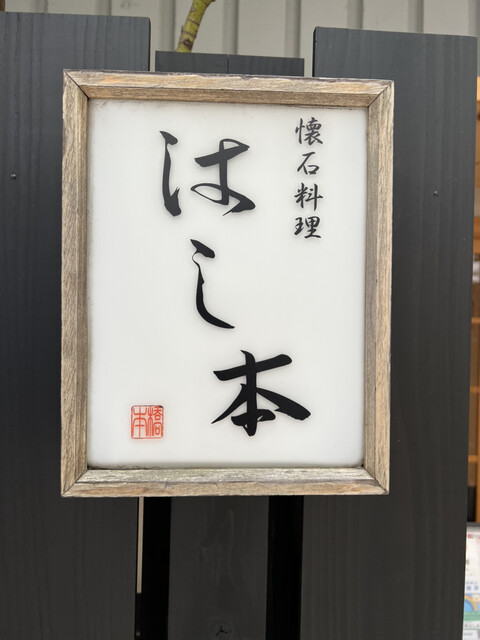 懐石料理
はし本
橋本